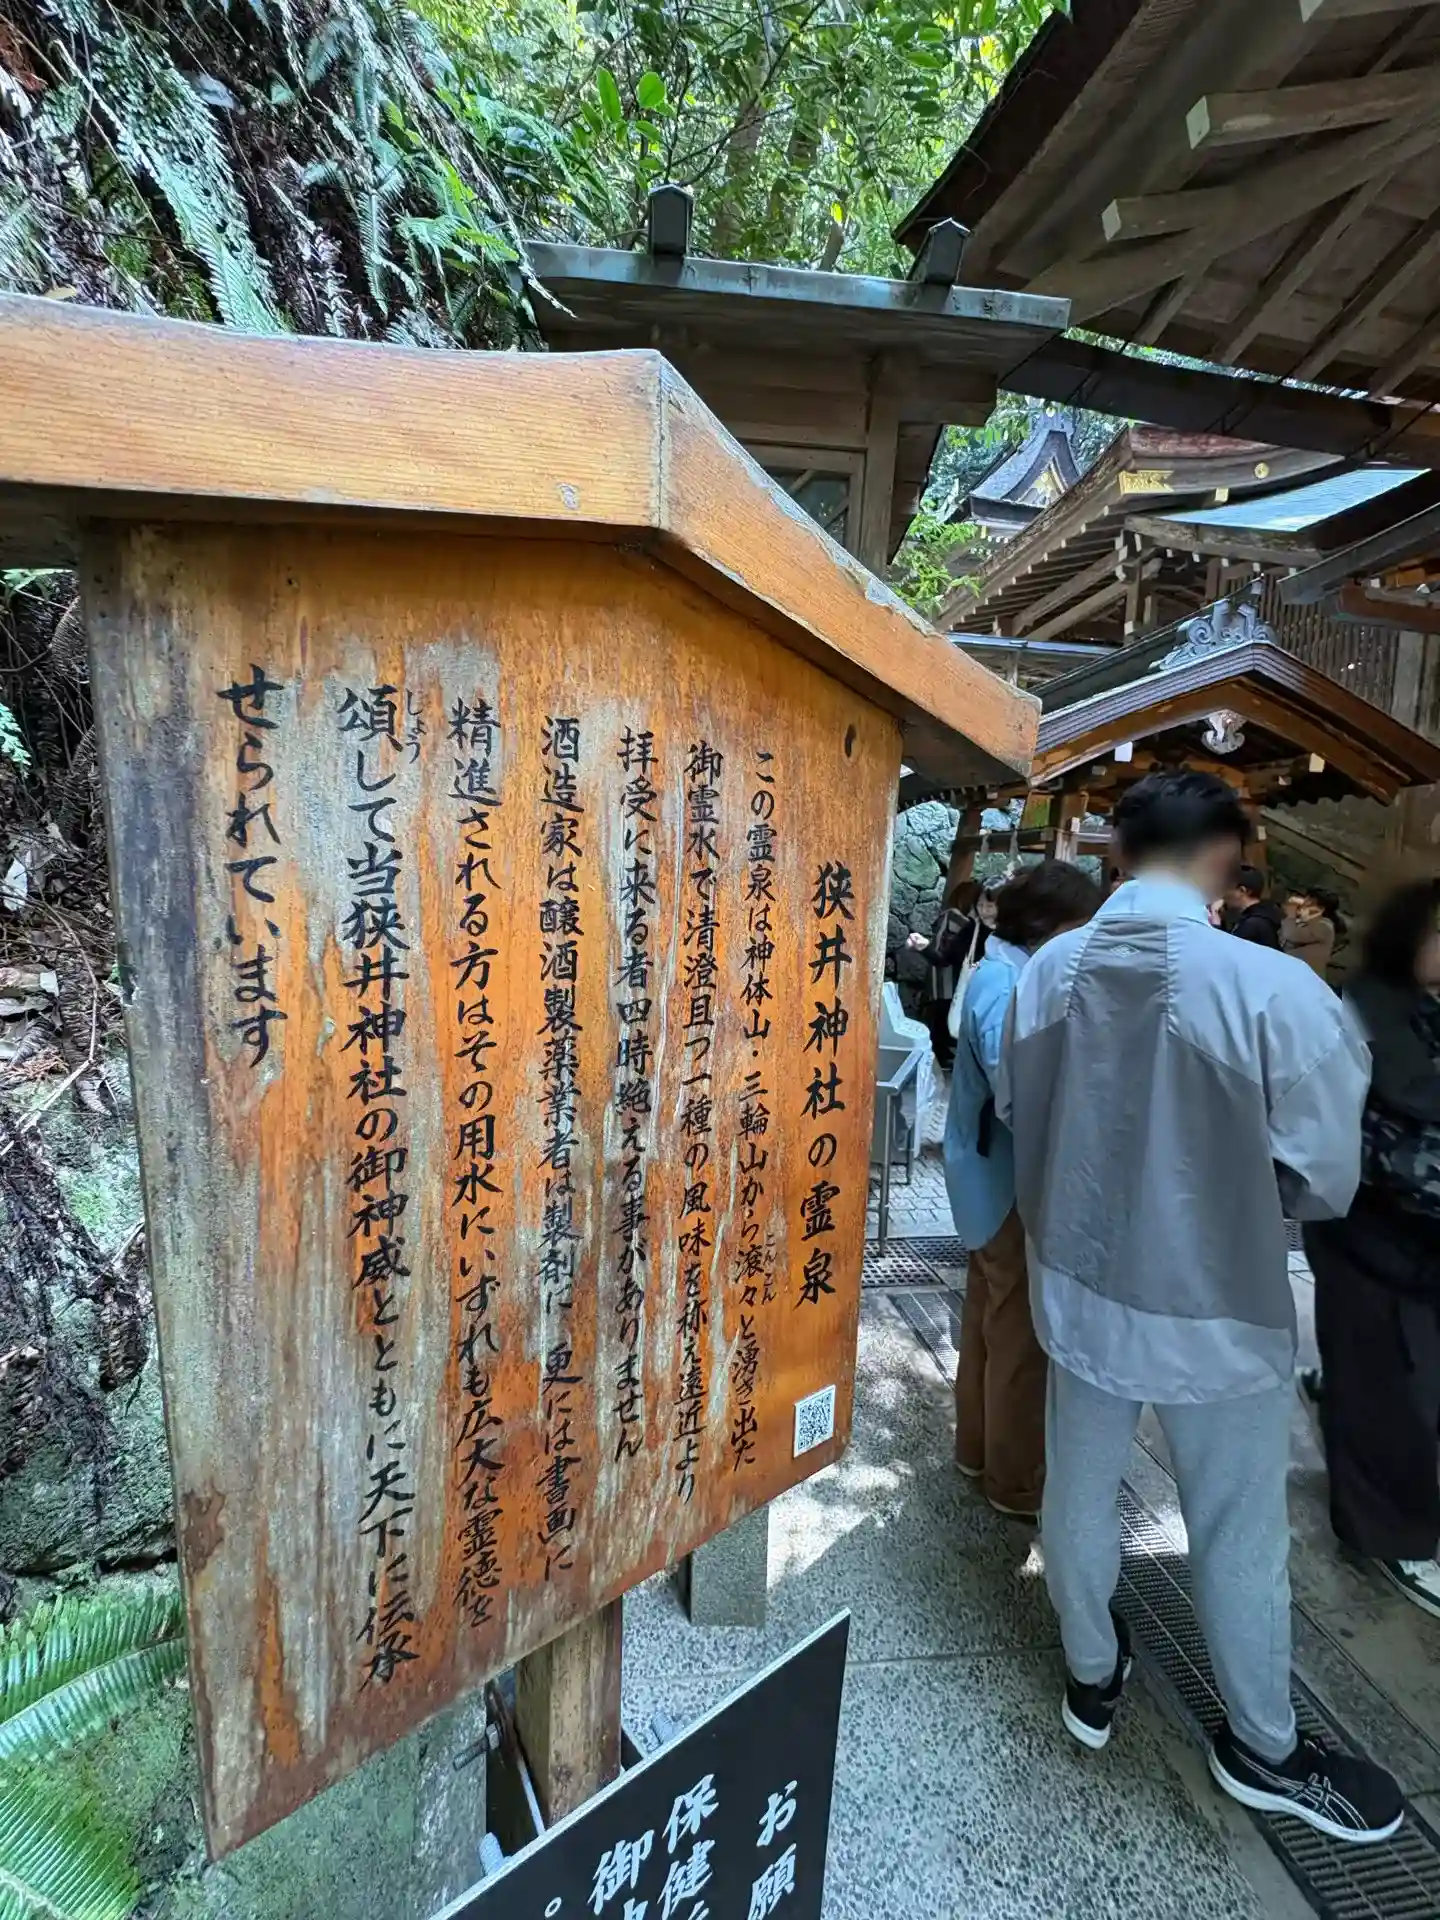 狭井神社の霊泉
この霊泉は神体山・三輪山から滾々と湧き出た
こんこん
御霊水で清澄且つ一種の風味を称え遠近より
拝受に来る者四時絶える事がありません
酒造家は醸酒製薬業者は製剤に更には書画に
精進される方はその用水にいずれも広大な霊徳を
頌して当狭井神社の御神威とともに天下に伝承
しょう
せられています
お願
保健
御